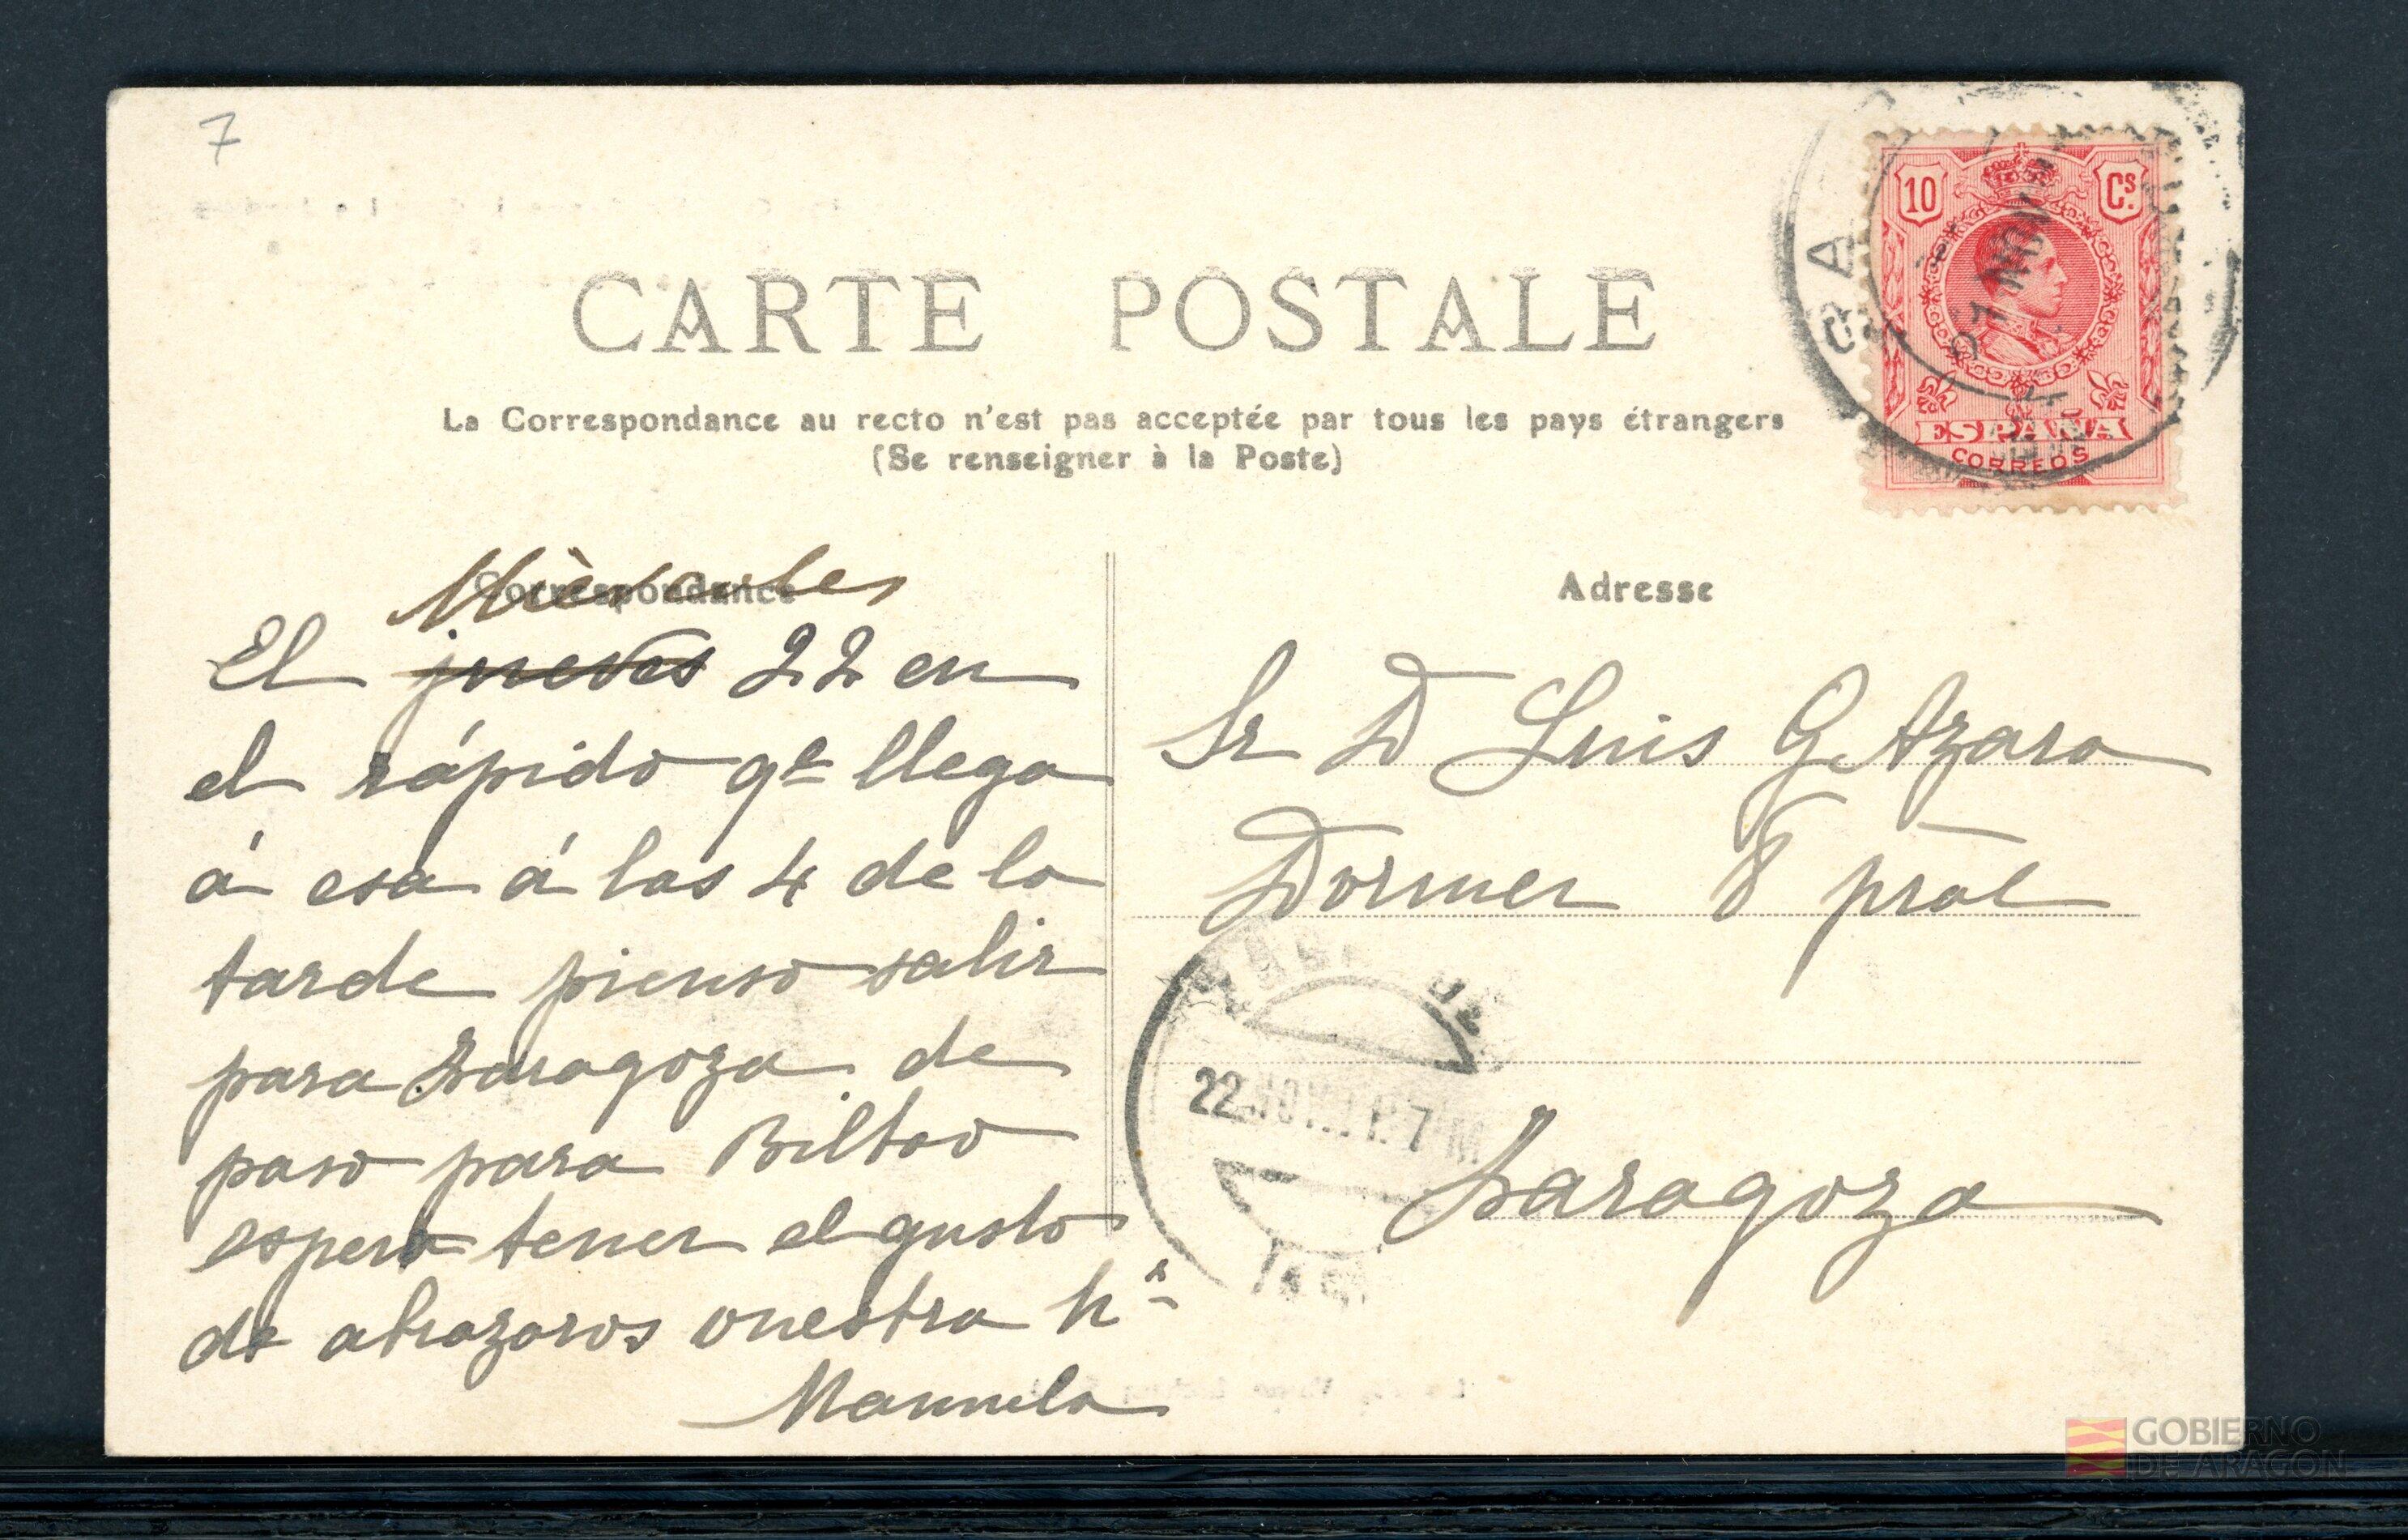 7
CARTE POSTALE
La Correspondance au recto n'est pas acceptée par tous les pays étrangers
(Se renseigner à la Poste)
10 Cs.
ESPAÑA
CORREOS
Correspondance
Mièrcoles
El jueves 22 en
el rápido qe llega
á esa á las 4 de la
tarde pienso salir
para Zaragoza de
paso para Bilbao
espero tener el gusto
de abrazaros vuestra ha
Manuela
Adresse
Sr D Luis G Azara
Dormer 8 pral
Zaragoza
22
GOBIERNO
DE ARAGON